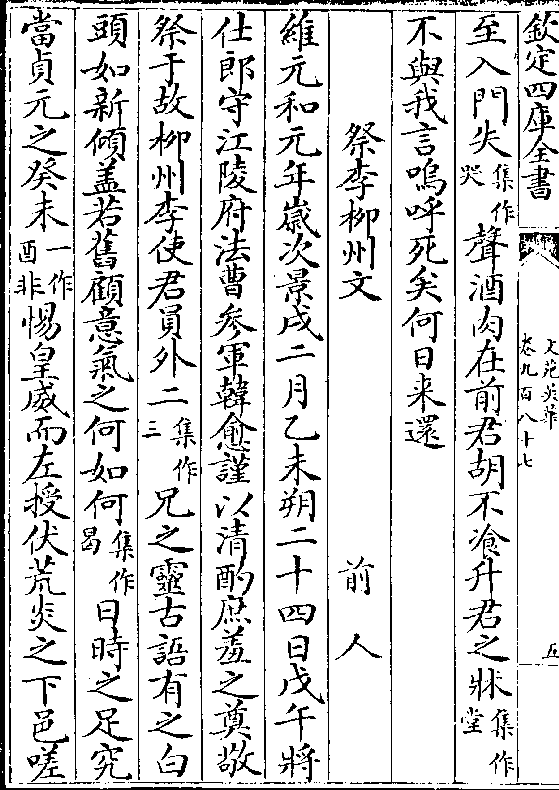 欽定四庫全書 文苑英華 卷九百八十七 五
至入門失集作哭聲酒肉在前君胡不飡升君之牀集作堂
不與我言嗚呼死矣何日来還
祭李柳州文 前人
維元和元年嵗次景戌二月乙未朔二十四日戊午將
仕郎守江陵府法曹参軍韓愈謹以清酌庶羞之奠敬
祭于故柳州李使君員外二集作三兄之靈古語有之白
頭如新傾盖若舊顧意氣之何如何集作曷日時之足究
當貞元之癸未一作酉非惕皇威而左授伏荒炎之下邑嗟